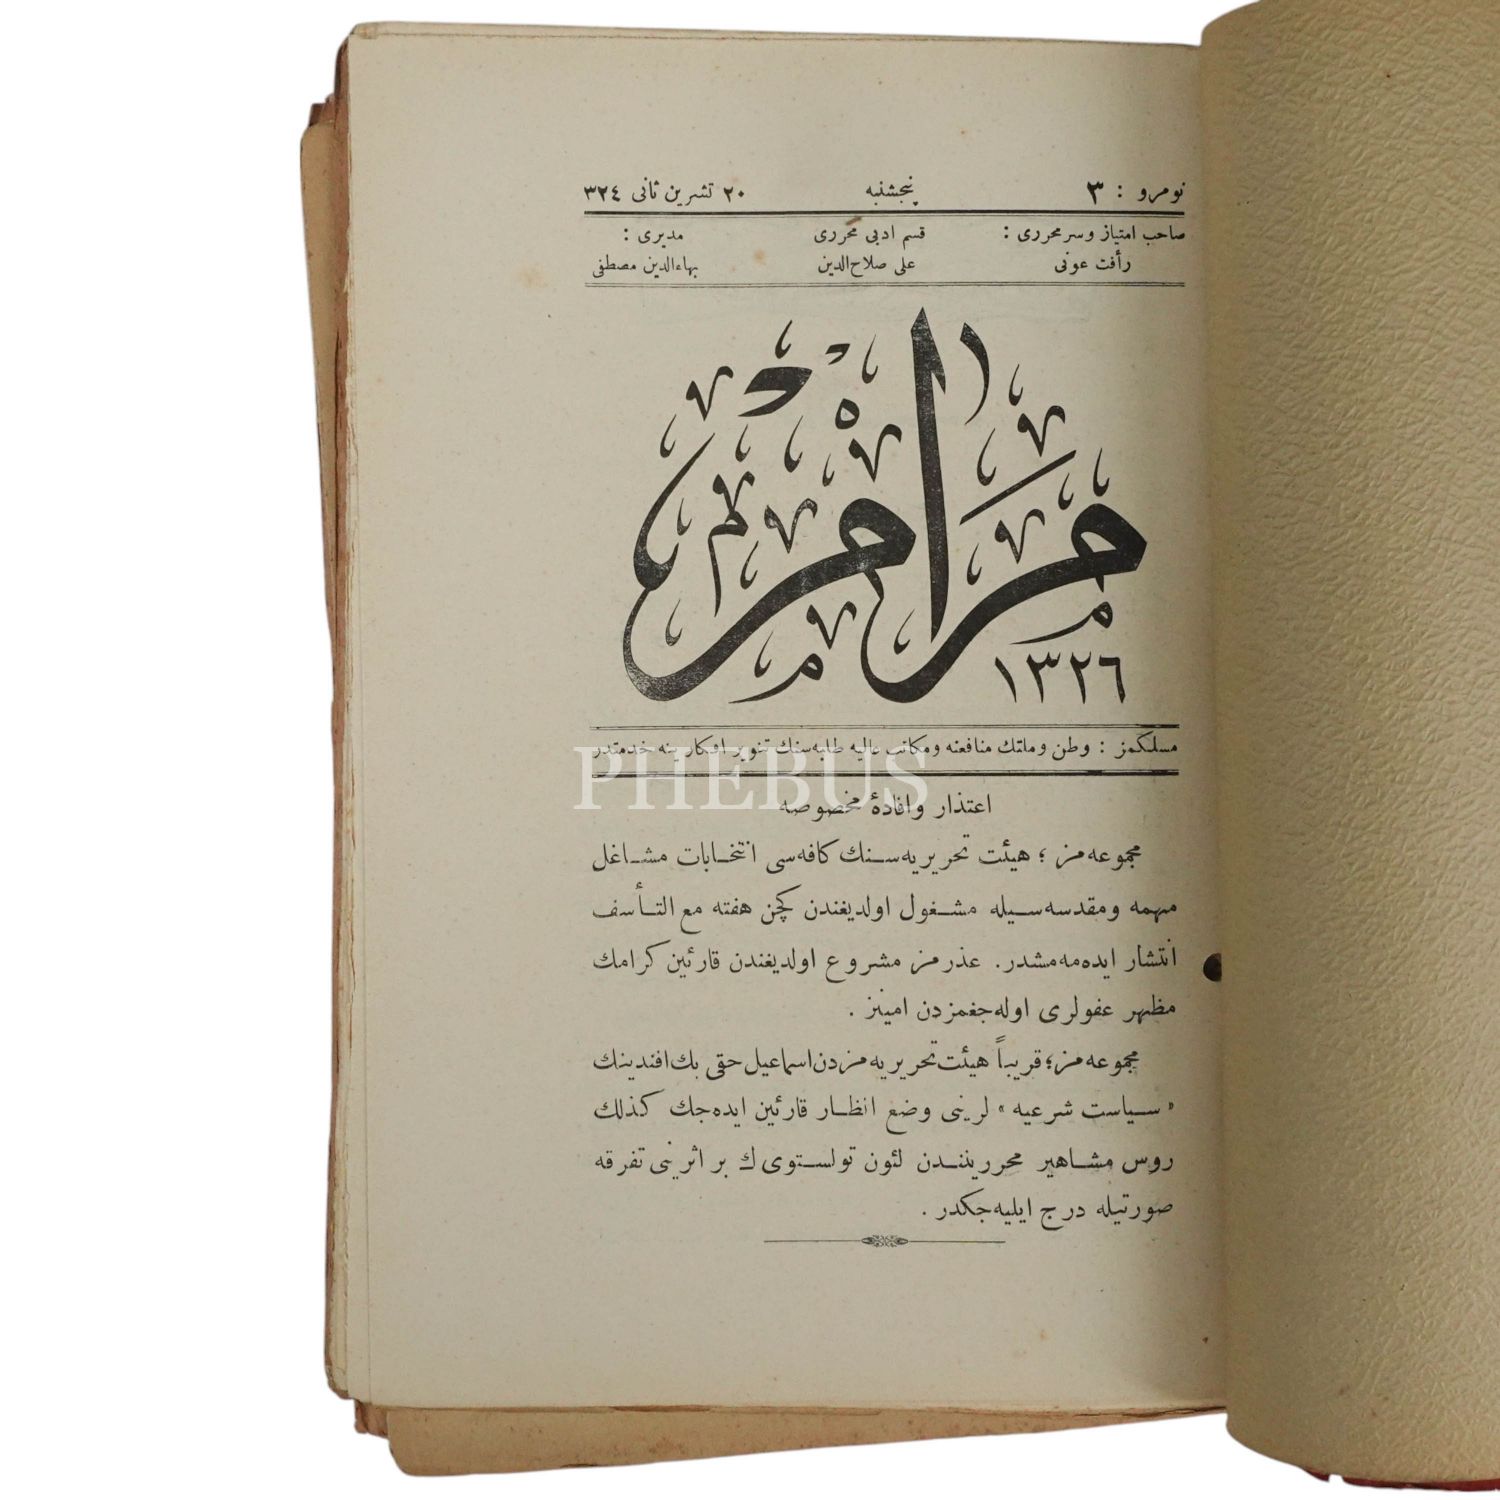 نومرو : ٣ پنجشنبه ٢٠ تشرین ثانی ٣٢٤
صاحب امتیاز و سرمحرری : قسم ادبی محرری مدیری :
رأفت عونی علی صلاح‌الدین بهاءالدین مصطفی
مرام
١٣٢٦
مسلكمز : وطن و ملتك منافعنه و مكاتب عالیه طلبه‌سنك تنویر افكارینه خدمتدر
PHEBUS
اعتذار و افادهٔ مخصوصه
مجموعه‌مز ؛ هیئت تحریریه‌سنك كافه‌سی انتخابات مشاغل
مهمه و مقدسه‌سیله مشغول اولدیغندن كچن هفته مع التأسف
انتشار ایده‌مه‌مشدر. عذرمز مشروع اولدیغندن قارئین كرامك
مظهر عفولری اوله‌جغمزدن امینز .
مجموعه‌مز؛ قریباً هیئت تحریریه‌مزدن اسماعیل حقی بك افندینك
« سیاست شرعیه » لرینی وضع انظار قارئین ایده‌جك كذلك
روس مشاهیر محررینندن لئون تولستوی ك بر اثرینی تفرقه
صورتیله درج ایلیه‌جكدر .